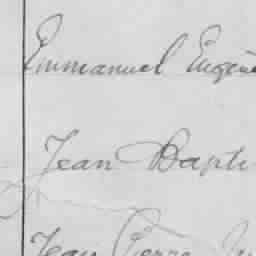 Emmanuel Eugène
Jean Bapti
Jean Pierre